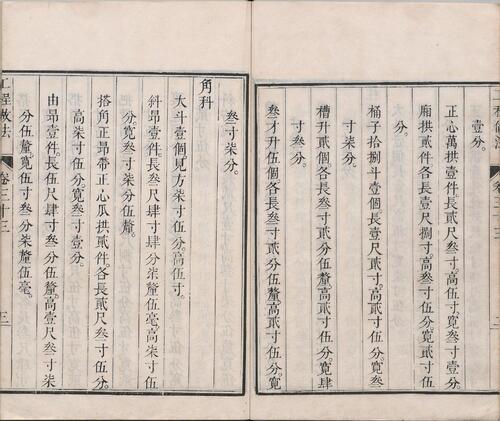 壹分。
正心萬拱壹件長貳尺叁寸。高伍寸。寬叁寸壹分。
廂拱貳件各長壹尺捌寸。高叁寸伍分。寬貳寸伍
分。
桶子拾捌斗壹個。長壹尺貳寸。高貳寸伍分。寬叁
寸柒分。
槽升貳個各長叁寸貳分伍釐。高貳寸伍分。寬肆
寸叁分。
叁才升伍個各長叁寸貳分伍釐。高貳寸伍分。寬
叁寸柒分。
角科
大斗壹個。見方柒寸伍分。高伍寸。
斜昂壹件。長叁尺肆寸肆分柒釐伍毫。高柒寸伍
分。寬叁寸柒分伍釐。
搭角正昂帶正心瓜拱貳件各長貳尺叁寸伍分。
高柒寸伍分。寬叁寸壹分。
由昂壹件。長伍尺肆寸叁分伍釐。高壹尺叁寸柒
分伍釐。寬伍寸叁分柒釐伍毫。
工程做法
卷三十三
三